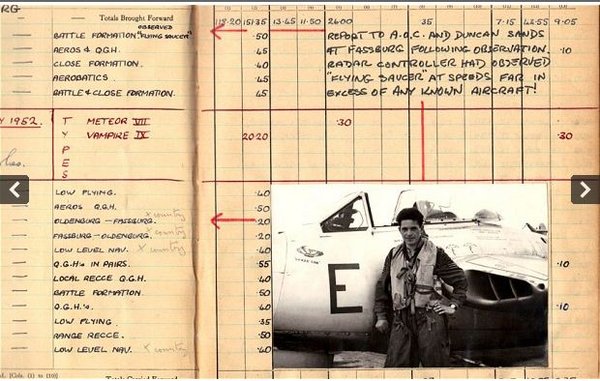 RG
Totals Brought Forward 115·20 15135 13·45 11·50 2400 35 7·15 42·55 9·05
OBSERVED
BATTLE FORMATION "FLYING SAUCER" ·50
AEROS & Q.G.H. 45
CLOSE FORMATION. 40
AEROBATICS. 45
BATTLE & CLOSE FORMATION. 45
REPORT TO A.O.C. AND DUNCAN SANDS
AT FASSBURG FOLLOWING OBSERVATION. ·10
RADAR CONTROLLER HAD OBSERVED
"FLYING SAUCER" AT SPEEDS FAR IN
EXCESS OF ANY KNOWN AIRCRAFT!
Y 1952. T METEOR VII ·30
Y VAMPIRE IX 20·20 ·30
P
E
S
LOW FLYING. ·40
AEROS Q.G.H. ·50
OLDENBURG — FASSBURG. X country ·20
FASSBURG — OLDENBURG. X country ·40
LOW LEVEL NAV. X country ·40
Q.G.H's IN PAIRS. ·55 ·10
LOCAL RECCE Q.G.H. ·40
BATTLE FORMATION. ·50
Q.G.H's. ·40 ·10
LOW FLYING. ·35
RANGE RECCE. ·50
LOW LEVEL NAV. X country ·40
E
[Cols. (1) to (10)]
Totals Carried Forward